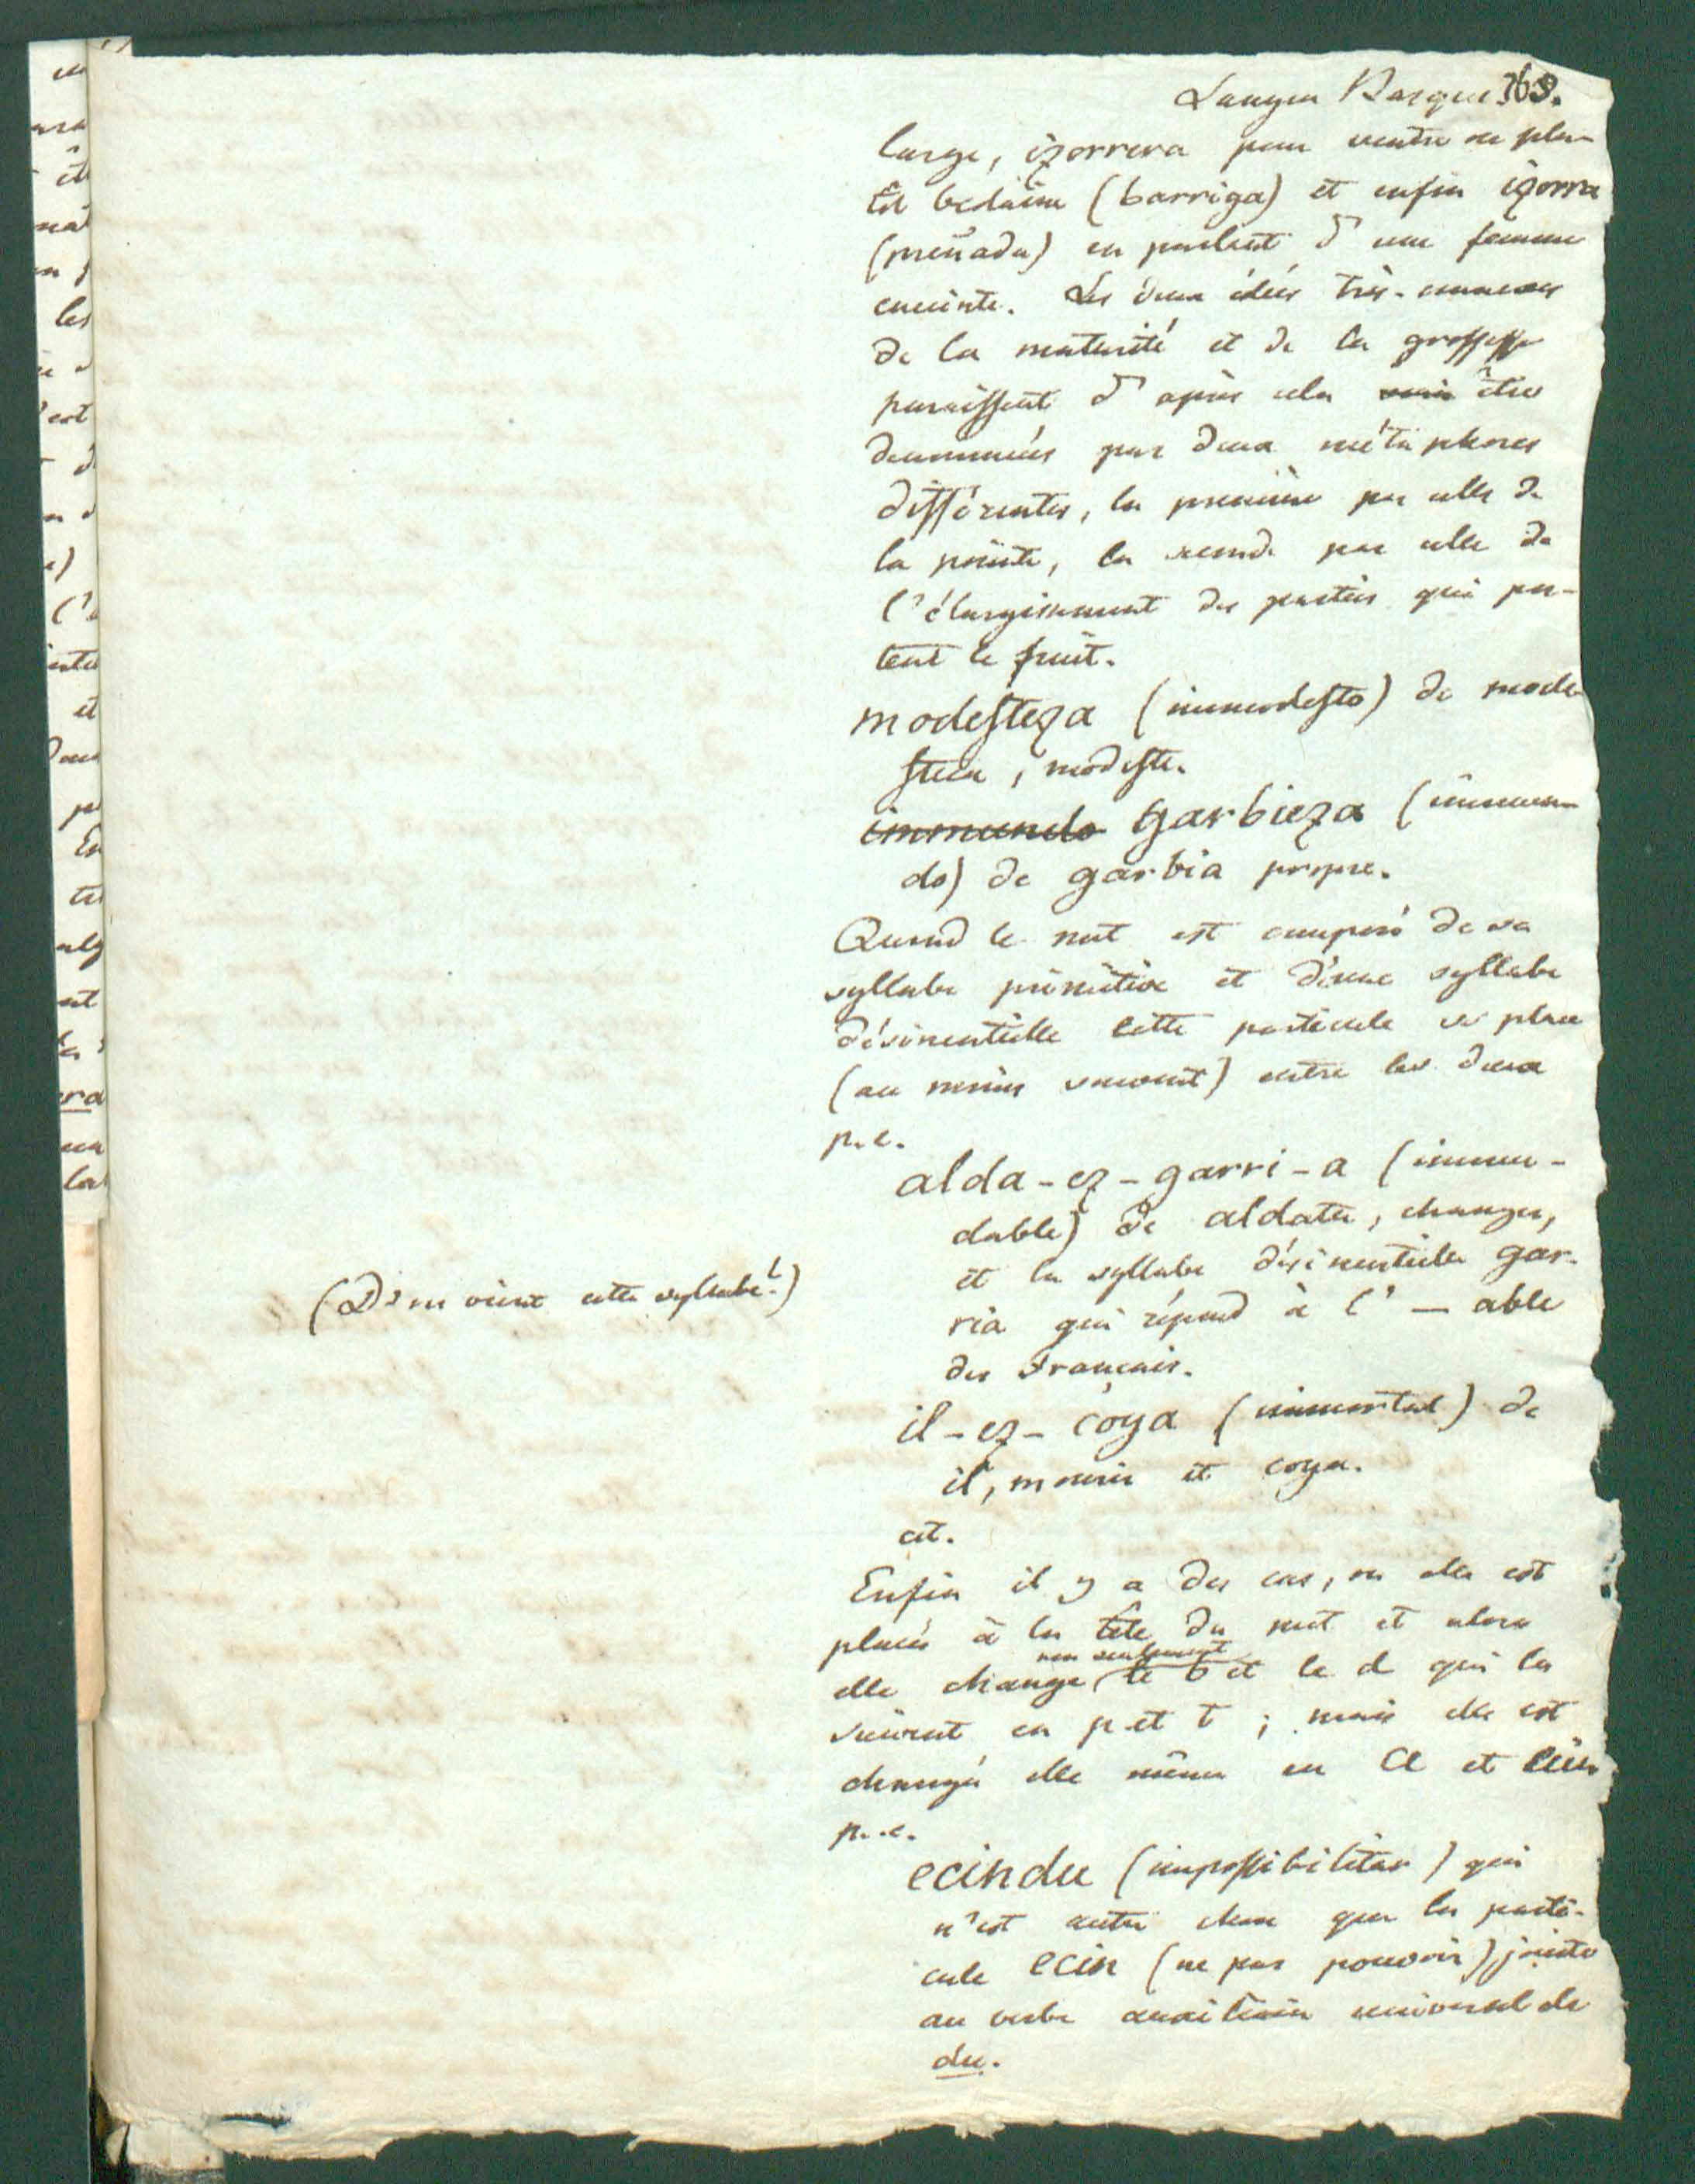 Langue Basque. 363.
large, izorrera pour ventre ou plu-
tôt bedaine (barriga) et enfin izorra
(preñada) en parlant d'une femme
enceinte. Les deux idées très-connexes
de la maturité et de la grossesse
paraissent d'après cela être
dénommées par deux métaphores
différentes, la première par celle de
la pointe, la seconde par celle de
l'élargissement des parties qui por-
tent le fruit.
modesteza (immodesto) de mode-
stea, modeste.
immundo garbieza (immun-
do) de garbia propre.
Quand le mot est composé de sa
syllabe primitive et d'une syllabe
désinentielle cette particule se place
(au moins souvent) entre les deux
p. e.
alda-ez-garri-a (immu-
dable) de aldatu, changer,
et la syllabe désinentielle gar-
ria qui répond à l'—able
des Français.
(D'ou vient cette syllabe?)
il-ez-coya (immortal) de
il, mourir et coya.
cet.
Enfin il y a des cas, ou elle est
placée à la tête du mot et alors
non seulement
elle change le b et le d qui la
suivent en p et t ; mais elle est
changée elle même en
p. e.
ecindu (impossibilitar) qui
n'est autre chose que la parti-
cule ecin (ne pas pouvoir) jointe
au verbe auxiliaire universel de
du.